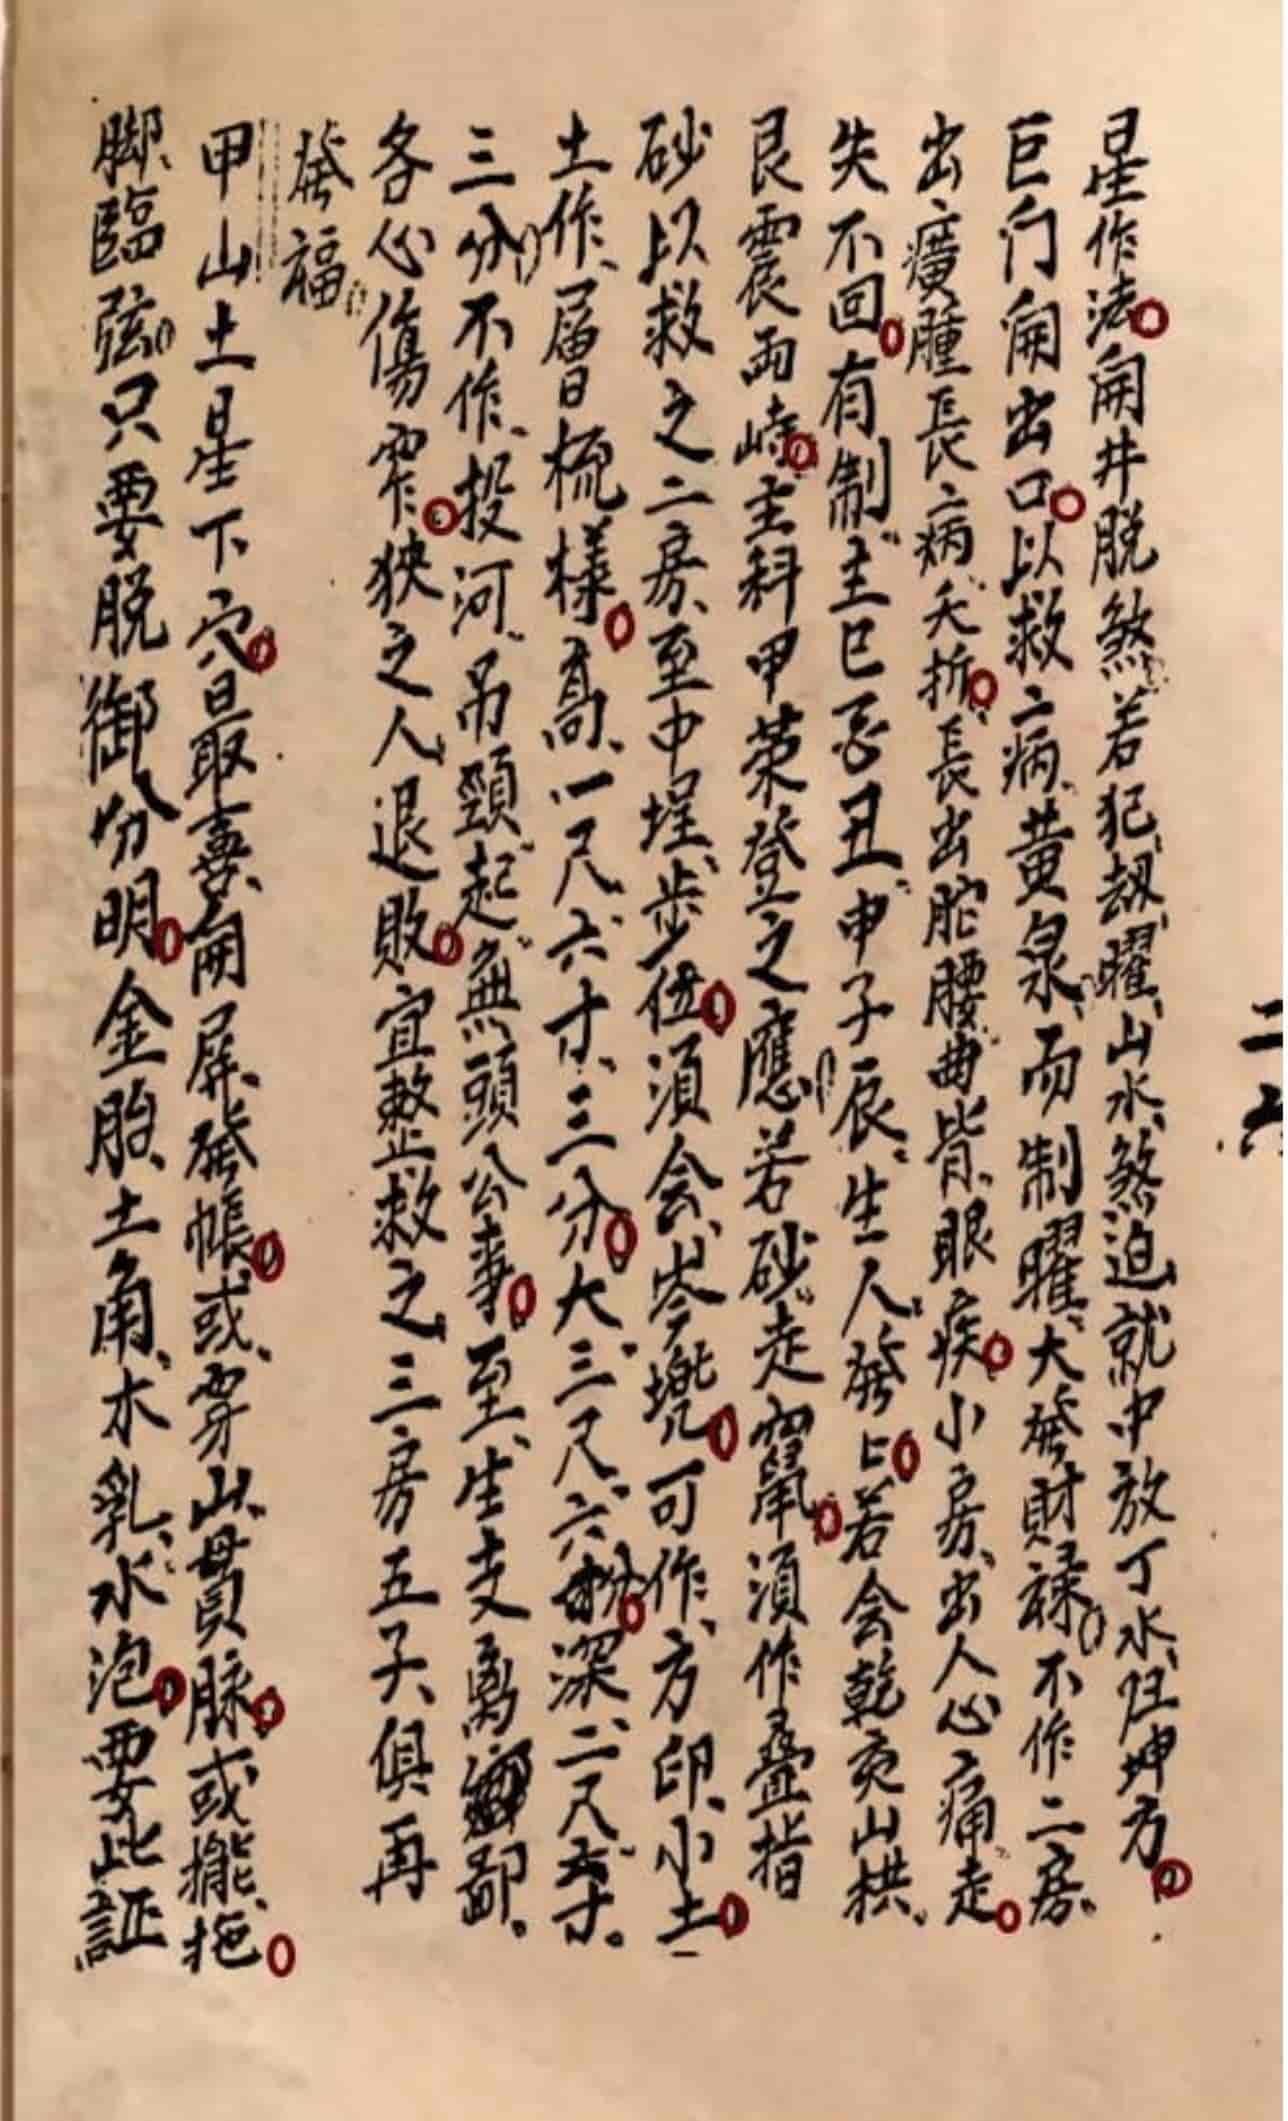 二六
星作法開井脱煞若犯劫曜山水煞迫就中放丁水歸坤方
巨门開出口以救二病黄泉而制曜大發財禄不作二房
出癀腫長病夭折長出駝腰曲背眼疾小房出人心痛走
失不回有制主巳酉丑申子辰生人發上若会乾亥山拱
艮震両峙主科甲荣登之應若砂走竄須作疊指
砂以救之二房至中埕步位須会岑墘可作方印小土
土作層日梳樣高一尺六寸三分大三尺六分深二尺寸
三分不作投河吊頸起無頭公事至生支离鄙
各心傷窄狹之人退敗宜整救之三房五子俱再
發福
甲山土星下穴且取喜開屏發帳或穿山貫脉或擺拖
脚臨弦只要脱御分明金胎土角木乳水泡要此証